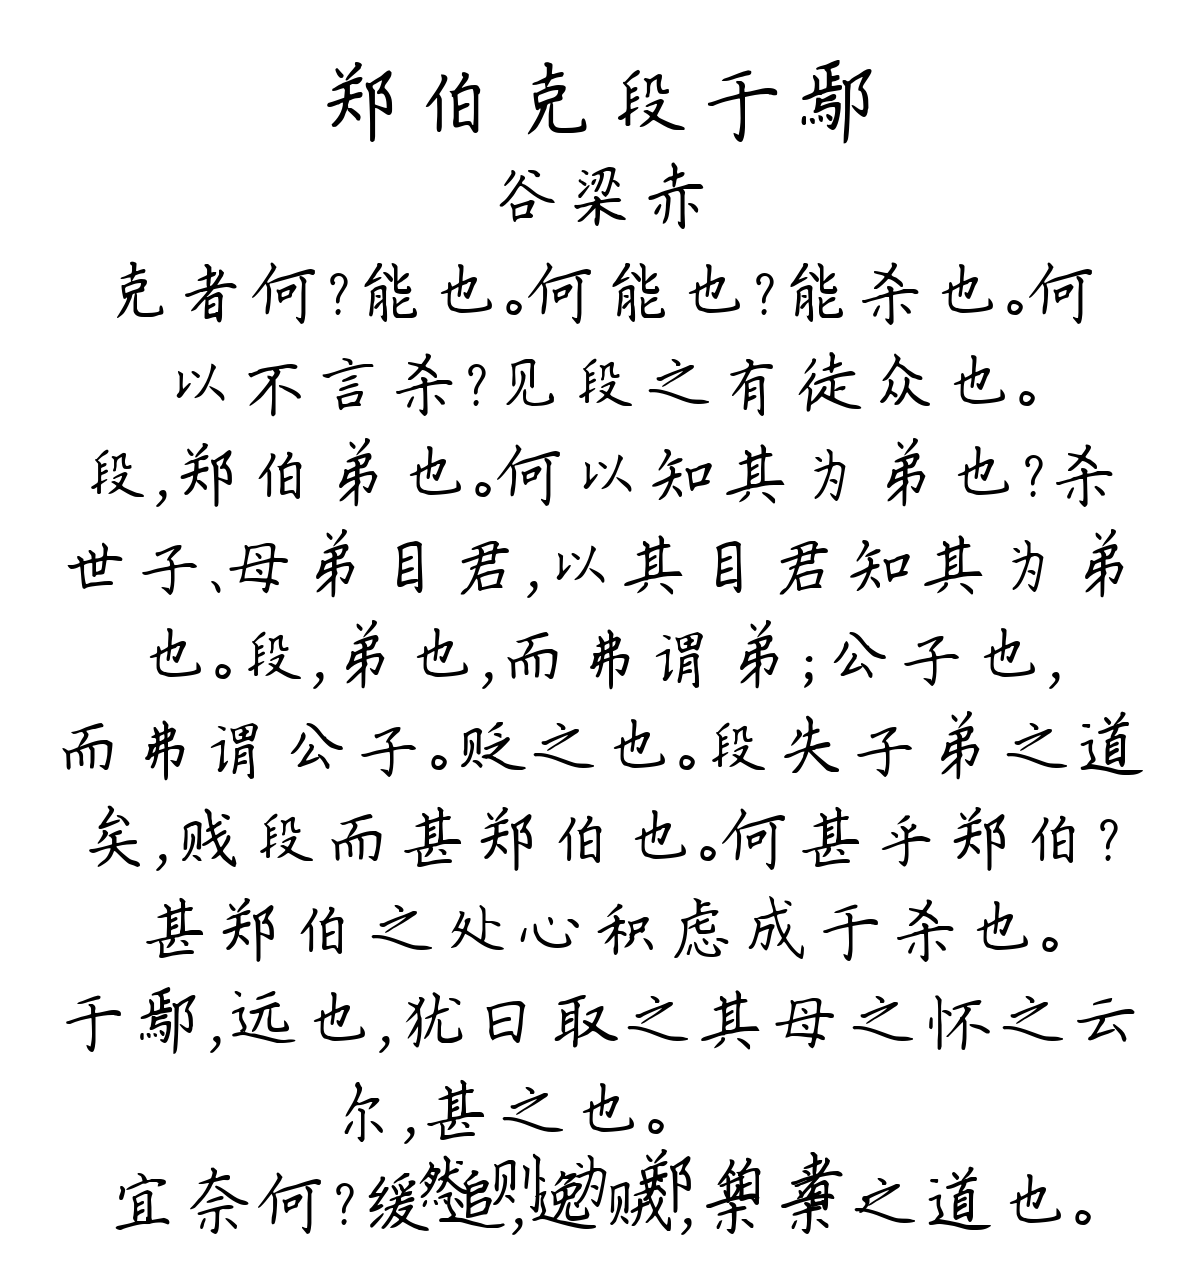 郑伯克段于鄢
谷梁赤
克者何?能也。何能也?能杀也。何
以不言杀?见段之有徒众也。
段,郑伯弟也。何以知其为弟也?杀
世子、母弟目君,以其目君知其为弟
也。段,弟也,而弗谓弟;公子也,
而弗谓公子。贬之也。段失子弟之道
矣,贱段而甚郑伯也。何甚乎郑伯?
甚郑伯之处心积虑成于杀也。
于鄢,远也,犹曰取之其母之怀之云
尔,甚之也。
然则为郑伯者
宜奈何?缓追,逸贼,亲亲之道也。